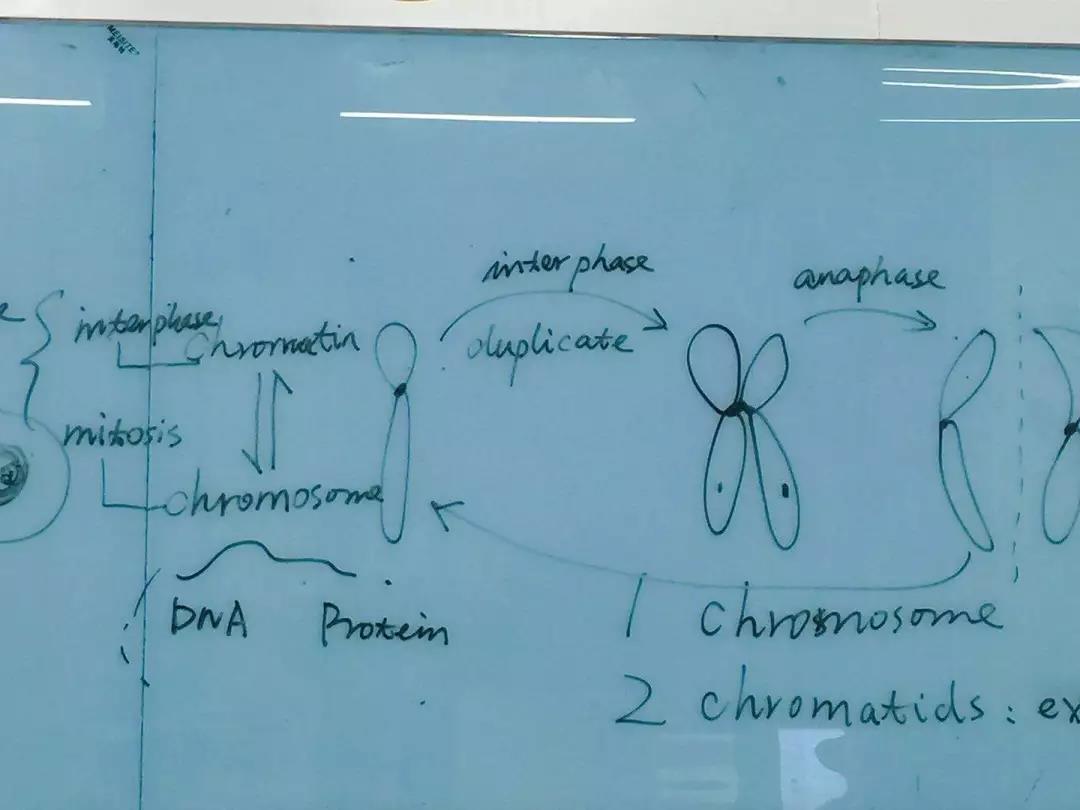 MEISITE
interphase
anaphase
interphase
chromatin
duplicate
mitosis
chromosome
DNA
Protein
1 chromosome
2 chromatids : ex